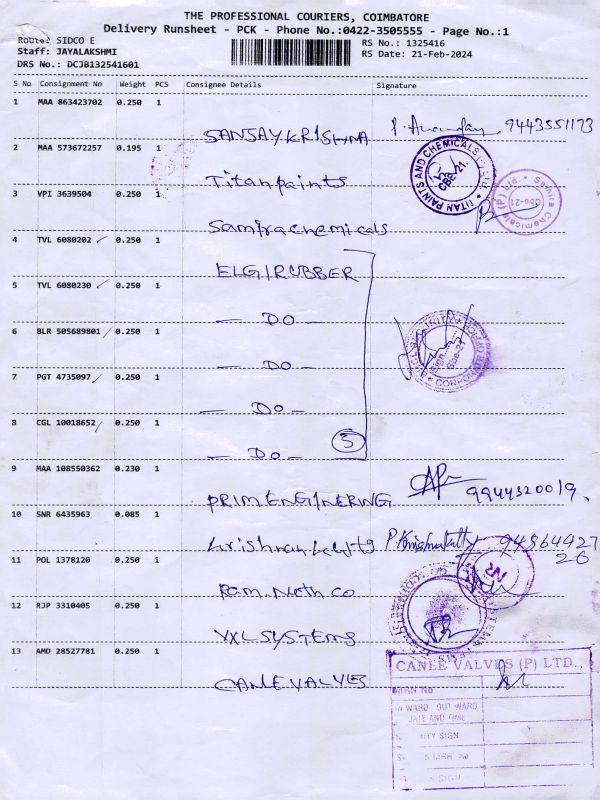 THE PROFESSIONAL COURIERS, COIMBATORE
Delivery Runsheet - PCK - Phone No.:0422-3505555 - Page No.:1
Route: SIDCO E
Staff: JAYALAKSHMI
DRS No.: DCJB132541601
RS No.: 1325416
RS Date: 21-Feb-2024
S No Consignment No Weight PCS Consignee Details Signature
1 MAA 863423702 0.250 1
SANJAYKRISHNA 9443551173
2 MAA 573672257 0.195 1
Titanpaints
TITAN PAINTS AND CHEMICALS
CBE-21
3 VPI 3639504 0.250 1
Samirachemicals
Samira Chemicals (P)
Cbe-21
4 TVL 6080202 0.250 1
ELGIRUBBER
5 TVL 6080230 0.250 1
- DO -
6 BLR 505689801 0.250 1
- DO -
CORPORATE
7 PGT 4735097 0.250 1
- DO -
8 CGL 10018652 0.250 1
- DO -
5
9 MAA 108550362 0.230 1
PRIMENGINERING 9944320019
10 SNR 6435963 0.085 1
P. Krishnakutty
11 POL 1378120 0.250 1
Ram Nath Co
NR
12 RJP 3310405 0.250 1
YXL SYSTEMS
13 AMD 28527781 0.250 1
CANEE VALVES
CANEE VALVES (P) LTD.,
WARD OUT WARD
DATE AND TIME
SIGN
SIGN